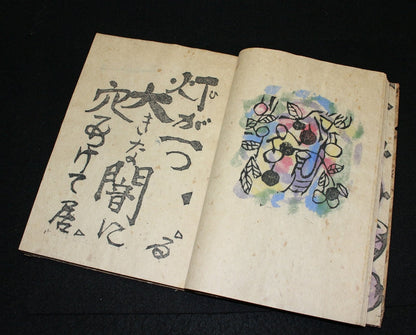 灯が一つ
ひ
大きな闇に
穴あけて居
る